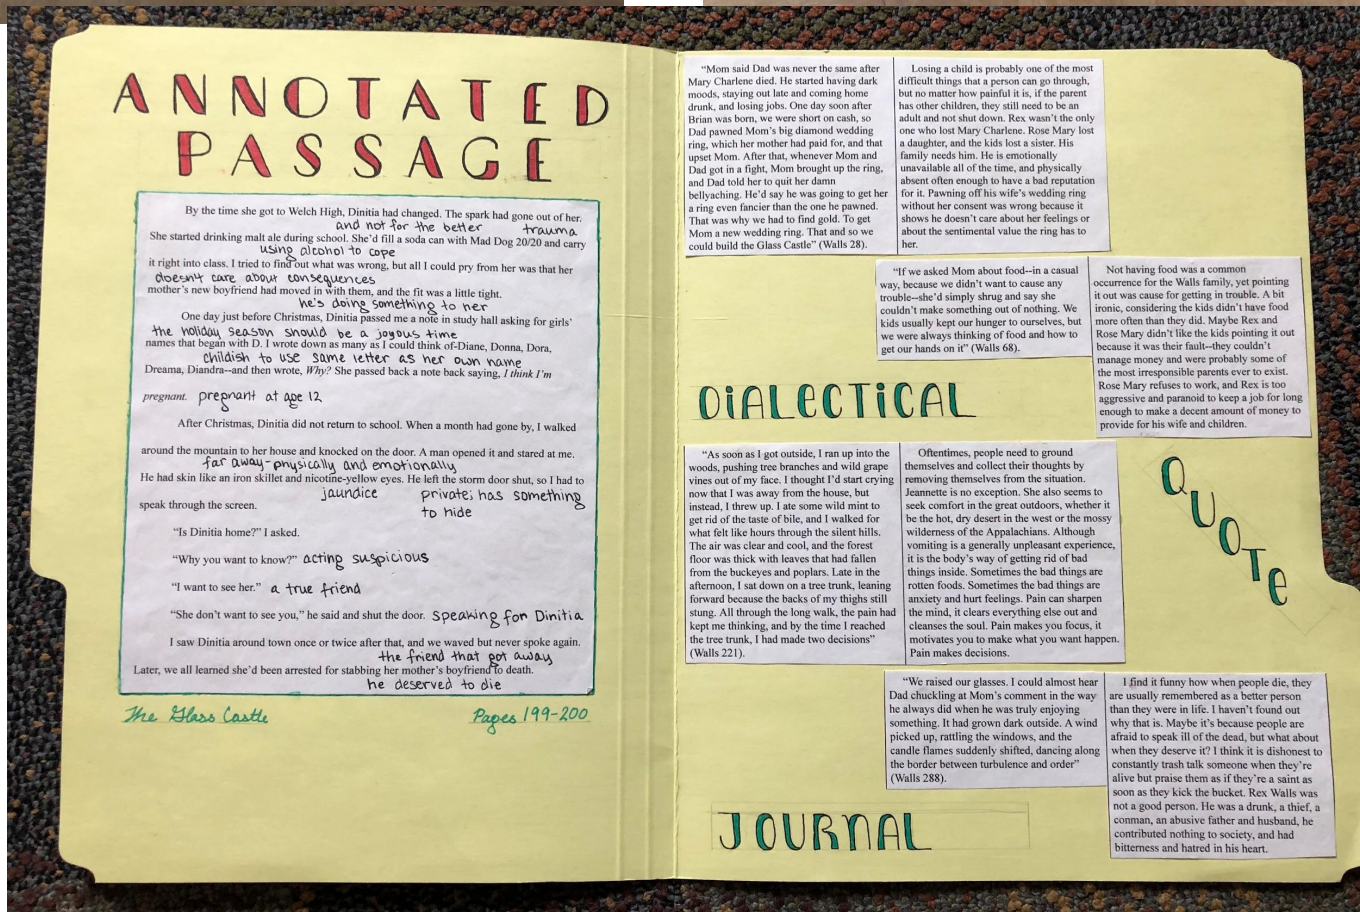 ANNOTATED
PASSAGE
By the time she got to Welch High, Dinitia had changed. The spark had gone out of her.
and not for the better trauma
She started drinking malt ale during school. She'd fill a soda can with Mad Dog 20/20 and carry
using alcohol to cope
it right into class. I tried to find out what was wrong, but all I could pry from her was that her
doesn't care about consequences
mother's new boyfriend had moved in with them, and the fit was a little tight.
he's doing something to her
One day just before Christmas, Dinitia passed me a note in study hall asking for girls'
the holiday season should be a joyous time
names that began with D. I wrote down as many as I could think of-Diane, Donna, Dora,
childish to use same letter as her own name
Dreama, Diandra--and then wrote, Why? She passed back a note back saying, I think I'm
pregnant. pregnant at age 12
After Christmas, Dinitia did not return to school. When a month had gone by, I walked
around the mountain to her house and knocked on the door. A man opened it and stared at me.
far away-physically and emotionally
He had skin like an iron skillet and nicotine-yellow eyes. He left the storm door shut, so I had to
jaundice private; has something
speak through the screen.
to hide
"Is Dinitia home?" I asked.
"Why you want to know?" acting suspicious
"I want to see her." a true friend
"She don't want to see you," he said and shut the door. speaking for Dinitia
I saw Dinitia around town once or twice after that, and we waved but never spoke again.
the friend that got away
Later, we all learned she'd been arrested for stabbing her mother's boyfriend to death.
he deserved to die
The Glass Castle
Pages 199-200
"Mom said Dad was never the same after
Mary Charlene died. He started having dark
moods, staying out late and coming home
drunk, and losing jobs. One day soon after
Brian was born, we were short on cash, so
Dad pawned Mom's big diamond wedding
ring, which her mother had paid for, and that
upset Mom. After that, whenever Mom and
Dad got in a fight, Mom brought up the ring,
and Dad told her to quit her damn
bellyaching. He'd say he was going to get her
a ring even fancier than the one he pawned.
That was why we had to find gold. To get
Mom a new wedding ring. That and so we
could build the Glass Castle" (Walls 28).
Losing a child is probably one of the most
difficult things that a person can go through,
but no matter how painful it is, if the parent
has other children, they still need to be an
adult and not shut down. Rex wasn't the only
one who lost Mary Charlene. Rose Mary lost
a daughter, and the kids lost a sister. His
family needs him. He is emotionally
unavailable all of the time, and physically
absent often enough to have a bad reputation
for it. Pawning off his wife's wedding ring
without her consent was wrong because it
shows he doesn't care about her feelings or
about the sentimental value the ring has to
her.
"If we asked Mom about food--in a casual
way, because we didn't want to cause any
trouble--she'd simply shrug and say she
couldn't make something out of nothing. We
kids usually kept our hunger to ourselves, but
we were always thinking of food and how to
get our hands on it" (Walls 68).
Not having food was a common
occurrence for the Walls family, yet pointing
it out was cause for getting in trouble. A bit
ironic, considering the kids didn't have food
more often than they did. Maybe Rex and
Rose Mary didn't like the kids pointing it out
because it was their fault--they couldn't
manage money and were probably some of
the most irresponsible parents ever to exist.
Rose Mary refuses to work, and Rex is too
aggressive and paranoid to keep a job for long
enough to make a decent amount of money to
provide for his wife and children.
DIALECTICAL
QUOTE
"As soon as I got outside, I ran up into the
woods, pushing tree branches and wild grape
vines out of my face. I thought I'd start crying
now that I was away from the house, but
instead, I threw up. I ate some wild mint to
get rid of the taste of bile, and I walked for
what felt like hours through the silent hills.
The air was clear and cool, and the forest
floor was thick with leaves that had fallen
from the buckeyes and poplars. Late in the
afternoon, I sat down on a tree trunk, leaning
forward because the backs of my thighs still
stung. All through the long walk, the pain had
kept me thinking, and by the time I reached
the tree trunk, I had made two decisions"
(Walls 221).
Oftentimes, people need to ground
themselves and collect their thoughts by
removing themselves from the situation.
Jeannette is no exception. She also seems to
seek comfort in the great outdoors, whether it
be the hot, dry desert in the west or the mossy
wilderness of the Appalachians. Although
vomiting is a generally unpleasant experience,
it is the body's way of getting rid of bad
things inside. Sometimes the bad things are
rotten foods. Sometimes the bad things are
anxiety and hurt feelings. Pain can sharpen
the mind, it clears everything else out and
cleanses the soul. Pain makes you focus, it
motivates you to make what you want happen.
Pain makes decisions.
"We raised our glasses. I could almost hear
Dad chuckling at Mom's comment in the way
he always did when he was truly enjoying
something. It had grown dark outside. A wind
picked up, rattling the windows, and the
candle flames suddenly shifted, dancing along
the border between turbulence and order"
(Walls 288).
I find it funny how when people die, they
are usually remembered as a better person
than they were in life. I haven't found out
why that is. Maybe it's because people are
afraid to speak ill of the dead, but what about
when they deserve it? I think it is dishonest to
constantly trash talk someone when they're
alive but praise them as if they're a saint as
soon as they kick the bucket. Rex Walls was
not a good person. He was a drunk, a thief, a
conman, an abusive father and husband, he
contributed nothing to society, and had
bitterness and hatred in his heart.
JOURNAL